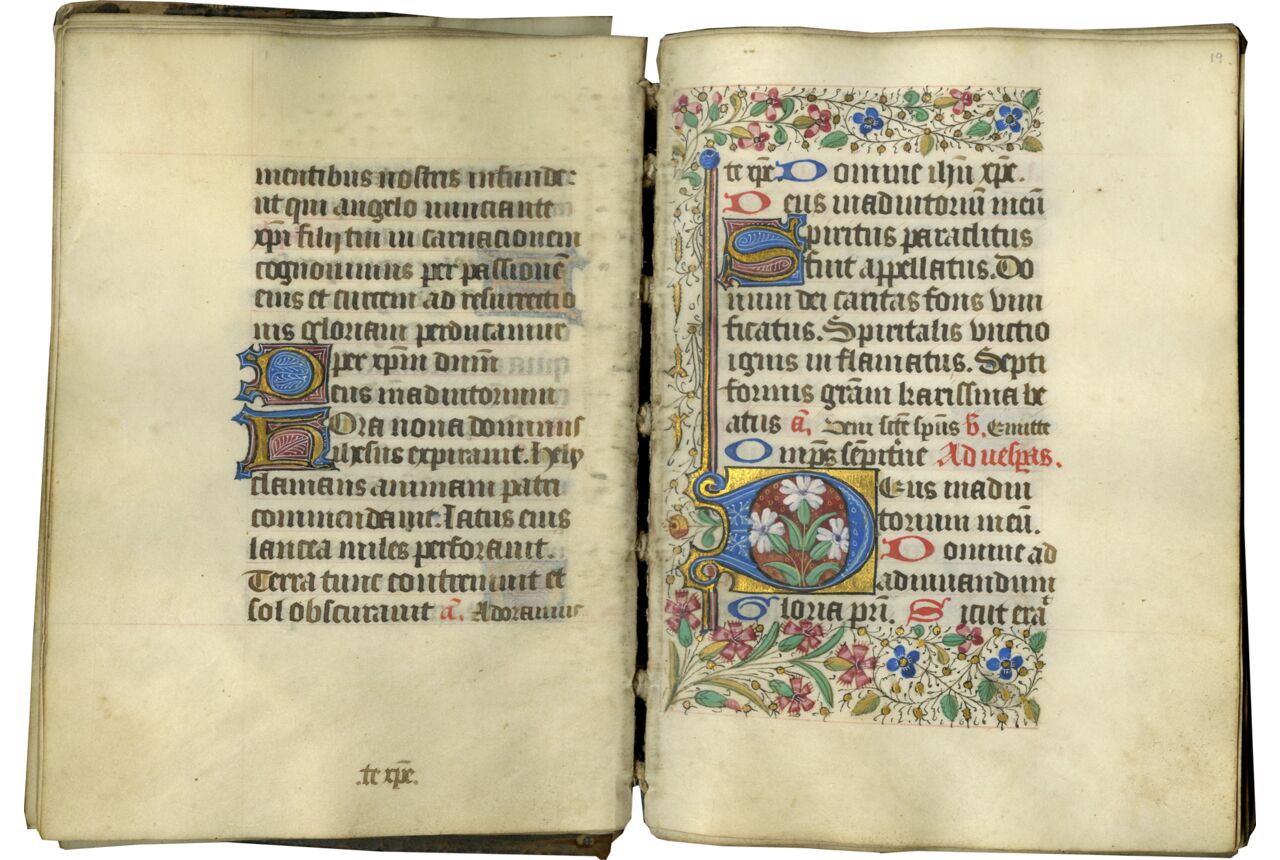 mentibus nostris infunde
ut qui angelo nunciante
xp̄i filij tui in carnacionem
cognouimus per passionē
eius et crucem ad resurrectio
nis gloriam perducamur
per xp̄m dnm̄
Deus in adiutorium
Hora nona dominus
ihesus expirauit. Hely
clamans animam patri
commendauit. Latus eius
lancea miles perforauit.
Terra tunc contremuit et
sol obscurauit a᷃. Adoramus
.te xp̄e.
19
te xp̄e Domine ihū xp̄e.
Deus in adiutoriū meū
Spiritus paraclitus
fuit appellatus. Do
num dei caritas fons viui
ficatus. Spiritalis vnctio
ignis in flamatus. Septi
formis grām karissima be
atus a᷃. Veni sc̄te sp̄us v̄. Emitte
Omp̄s sēpit'ne Ad vesp̄as.
Deus in adiu
torium meū.
Domine ad
adiuuandum
Gloria pr̄i. Sicut erat